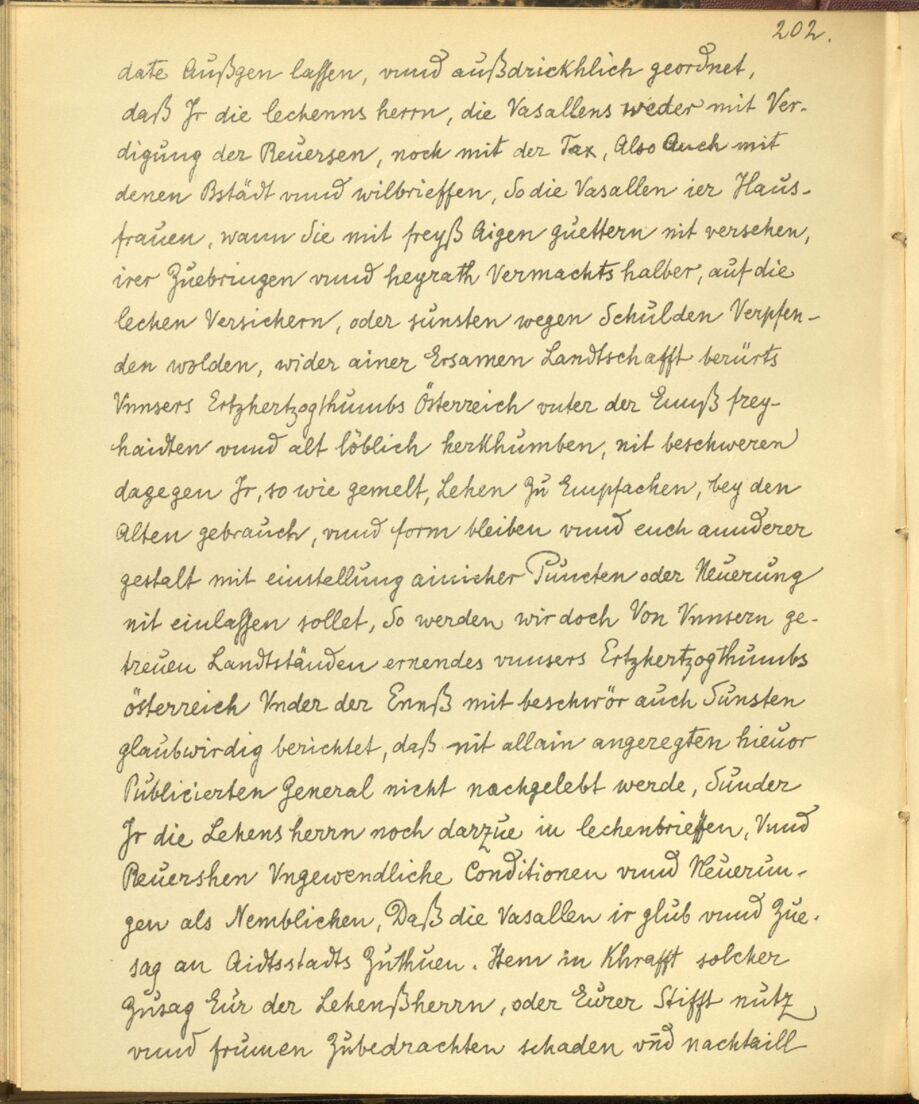 202.
date Außgen lassen, vnnd außdrickhlich geordnet,
daß Jr die lechenns herrn, die Vasallens weder mit Ver-
digung der Reuersen, noch mit der Tax, Also Auch mit
denen Bstädt vnnd wilbrieffen, So die Vasallen ier Haus-
frauen, wann Sie mit freyß Aigen guettern nit versehen,
irer Zuebringen vnnd heyrath Vermachts halber, auf die
lechen Versichern, oder sunsten wegen Schulden Verpfen-
den wolden, wider ainer Ersamen Landtschafft berürts
Vnnsers Ertzhertzogthumbs Österreich vnter der Ennß frey-
haidten vnnd alt löblich herkhumben, nit beschweren
dagegen Jr, so wie gemelt, Lehen Zu Empfachen, bey den
Alten gebrauch, vnnd form bleiben vnnd euch annderer
gestalt mit einstellung ainicher Puncten oder Neuerung
nit einlassen sollet, So werden wir doch Von Vnnsern ge-
treuen Landtständen ernendes vnnsers Ertzhertzogthumbs
österreich Vnder der Ennß mit beschwör auch Sunsten
glaubwirdig berichtet, daß nit allain angeregten hieuor
Publicierten General nicht nachgelebt werde, Sunder
Jr die Lehensherrn noch darzue in lechenbrieffen, Vnnd
Reuershen Vngewendliche Conditionen vnnd Neuerun-
gen als Nemblichen, Daß die Vasallen ir glub vnnd Zue-
sag an Aidtsstadts Zuthuen. Item in Khrafft solcher
Zusag Eur der Lehenßherrn, oder Eurer Stifft nutz
vnnd frumen Zubedrachten schaden vn̄d nachtaill